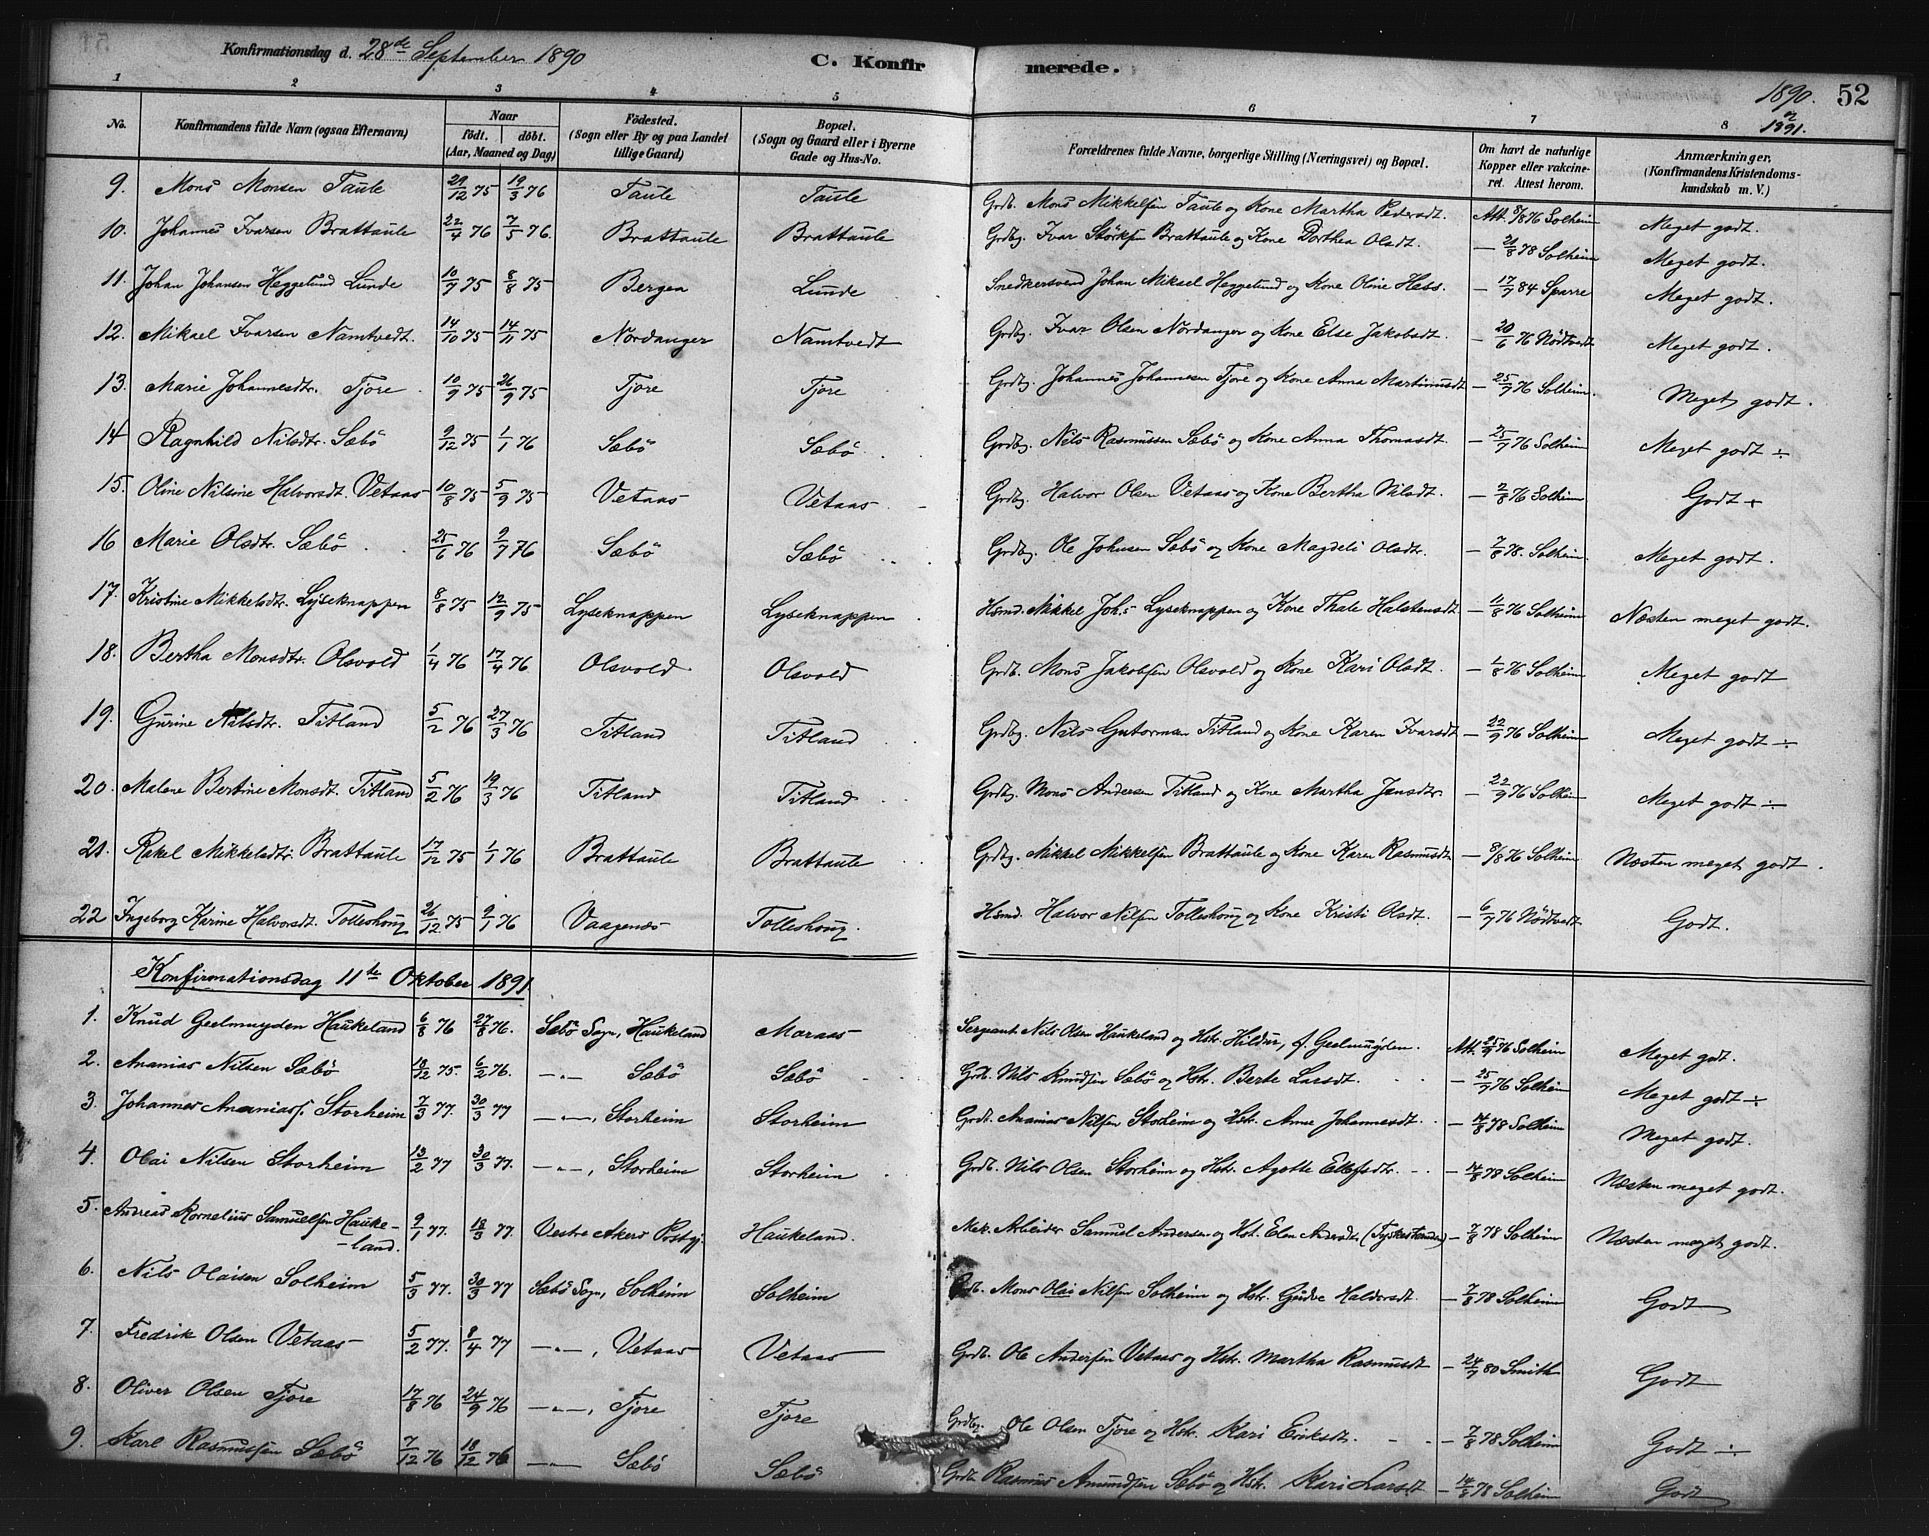 Konfirmationsdag d. 28de September 1890
C. Konfirmerede.
1890. og 1891.
52
1 2 3 4 5 6 7 8
No. | Konfirmandens fulde Navn (ogsaa Efternavn) | Naar født. døbt. (Aar, Maaned og Dag) | Fødested. (Sogn eller By og paa Landet tillige Gaard) | Bopæl. (Sogn og Gaard eller i Byerne Gade og Hus-No.) | Forældrenes fulde Navne, borgerlige Stilling (Næringsvei) og Bopæl. | Om havt de naturlige Kopper eller vakcineret. Attest herom. | Anmærkninger. (Konfirmandens Kristendomskundskab m. V.)
9. Mons Monsen Taule 29/12 75 19/3 76 Taule Taule Grdb. Mons Mikkelsen Taule og Kone Martha Pedersdt. Att. 3/8 76 Solheim Meget godt.
10. Johannes Ivarsen Brattaule 22/4 76 7/5 76. Brattaule Brattaule Grdbg. Ivar Størksen Brattaule og Kone Dorthea Olsdt. — 21/8 78 Solheim Meget godt.
11. Johan Johansen Heggelund Lunde 10/7 75 8/8 75 Bergen Lunde Snedkersvend Johan Mikael Heggelund og Kone Oline Hess. — 17/9 84 Sparre Meget godt.
12. Mikael Ivarsen Namtvedt. 14/10 75 14/11 75 Nordanger Namtvedt Grdbg. Ivar Olsen Nordanger og Kone Else Jakobsdt. — 20/6 76 Nödtvedt Meget godt.
13. Marie Johannesdtr. Tjore 10/9 75 26/9 75 Tjore Tjore Grdbg. Johannes Johannesen Tjore og Kone Anna Martinusdt — 25/9 76 Solheim. Meget godt.
14 Ragnhild Nilsdtr. Sæbö 9/12 75 1/1 76 Sæbö Sæbö Grdbg. Nils Rasmussen Sæbö og Kone Anna Thomasdt. — 25/9 76 Solheim Meget godt ÷
15. Oline Nilsine Halvorsdt. Vetaas 10/8 75 5/9 75 Vetaas Vetaas Grdbg. Halvor Olsen Vetaas og Kone Bertha Nilsdt. — 2/8 76 Solheim Godt +
16 Marie Olsdtr. Sæbö 25/6 76 9/7 76 Sæbö Sæbö Grdbg. Ole Johnsen Sæbö og Kone Magdeli Olsdtr. — 7/8 78. Solheim Meget godt.
17. Kristine Mikkelsdtr. Lyseknappen 8/8 75 12/9 75 Lyseknappen Lyseknappen Hsmd. Mikkel Johs Lyseknappen og Kone Thale Halstensdt — 11/8 76 Solheim Næsten meget godt.
18. Bertha Monsdtr. Olsvold 1/4 76 17/4 76 Olsvold Olsvold Grdb. Mons Jakobsen Olsvold og Kone Kari Olsdt. — 1/8 76 Solheim Meget godt
19. Gurine Nilsdtr. Titland 5/2 76 27/3 76 Titland Titland Grdbg. Nils Gutormsen Titland og Kone Karen Ivarsdt — 22/9 76 Solheim Meget godt ÷
20. Malene Bertine Monsdt. Titland 5/2 76 19/3 76 Titland Titland Grdbg. Mons Andersen Titland og Kone Martha Jansdtr — 22/9 76 Solheim Meget godt ÷
21. Rakel Mikkelsdtr. Brattaule 17/12 75 1/1 76 Brattaule Brattaule Grdbg. Mikkel Mikkelsen Brattaule og Kone Karen Rasmusdt — 3/8 76 Solheim Næsten meget godt.
22 Ingeborg Karine Halvorsdt. Tolleshoug 26/12 75 9/1 76 Vaagenes Tolleshoug. Hsmd. Halvor Nilsen Tolleshoug og Kone Kristi Olsdt. — 6/7 76 Nödtvedt Godt.
Konfirmationsdag 11te Oktober 1891
1. Knud Geelmuyden Haukeland 6/8 76 27/8 76. Sæbö Sogn, Haukeland Moraas Sergeant Nils Olsen Haukeland og Hstr. Hildur, f. Geelmuyden. Att. 25/9 76 Solheim Meget godt.
2. Ananias Nilsen Sæbö 18/12 75. 6/2 76. —"— Sæbö Sæbö Grdb. Nils Knudsen Sæbö og Hstr. Berte Larsdt. — 25/9 76 Solheim Meget godt ÷
3. Johannes Ananiass. Storheim 7/3 77. 30/3 77 —"—, Storheim Storheim Grdb. Ananias Nilsen Storheim og Hstr. Anne Johannesdt. — 14/8 78 Solheim Meget godt.
4. Olai Nilsen Storheim 13/2 77 30/3 77. —"—, Storheim Storheim Grdb. Nils Olsen Storheim og Hstr. Agotte Ellefsdtr. — 14/8 78 Solheim Næsten meget godt.
5. Andreas Kornelius Samuelsen Haukeland. 9/1 77. 18/3 77. Vestre Akers Præstgj. Haukeland. Mek. Arbeider Samuel Andersen og Hstr. Elen Andersdt (Tyskestranden) — 7/8 78 Solheim Næsten meget godt.
6. Nils Olaisen Solheim 5/3 77. 30/3 77 Sæbö Sogn, Solheim Solheim Grdb. Mons Olai Nilsen Solheim og Hstr. Gudve Haldorsdt. — 7/8 78 Solheim Godt
7. Fredrik Olsen Vetaas 5/2 77. 8/4 77 —"—, Vetaas Vetaas Grdb. Ole Andersen Vetaas og Hstr. Martha Rasmusdt — 24/9 80 Smith Godt
8. Oliver Olsen Tjore 17/8 76 24/9 76 —"—, Tjore Tjore Grdbg. Ole Olsen Tjore og Hstr. Kari Eriksdt. — 7/8 78 Solheim Godt ÷
9. Karl Rasmussen Sæbö 7/12 76 18/12 76 —"— Sæbö Sæbö Grdb. Rasmus Amundsen Sæbö og Hstr. Kari Larsdt — 14/8 78 Solheim Godt